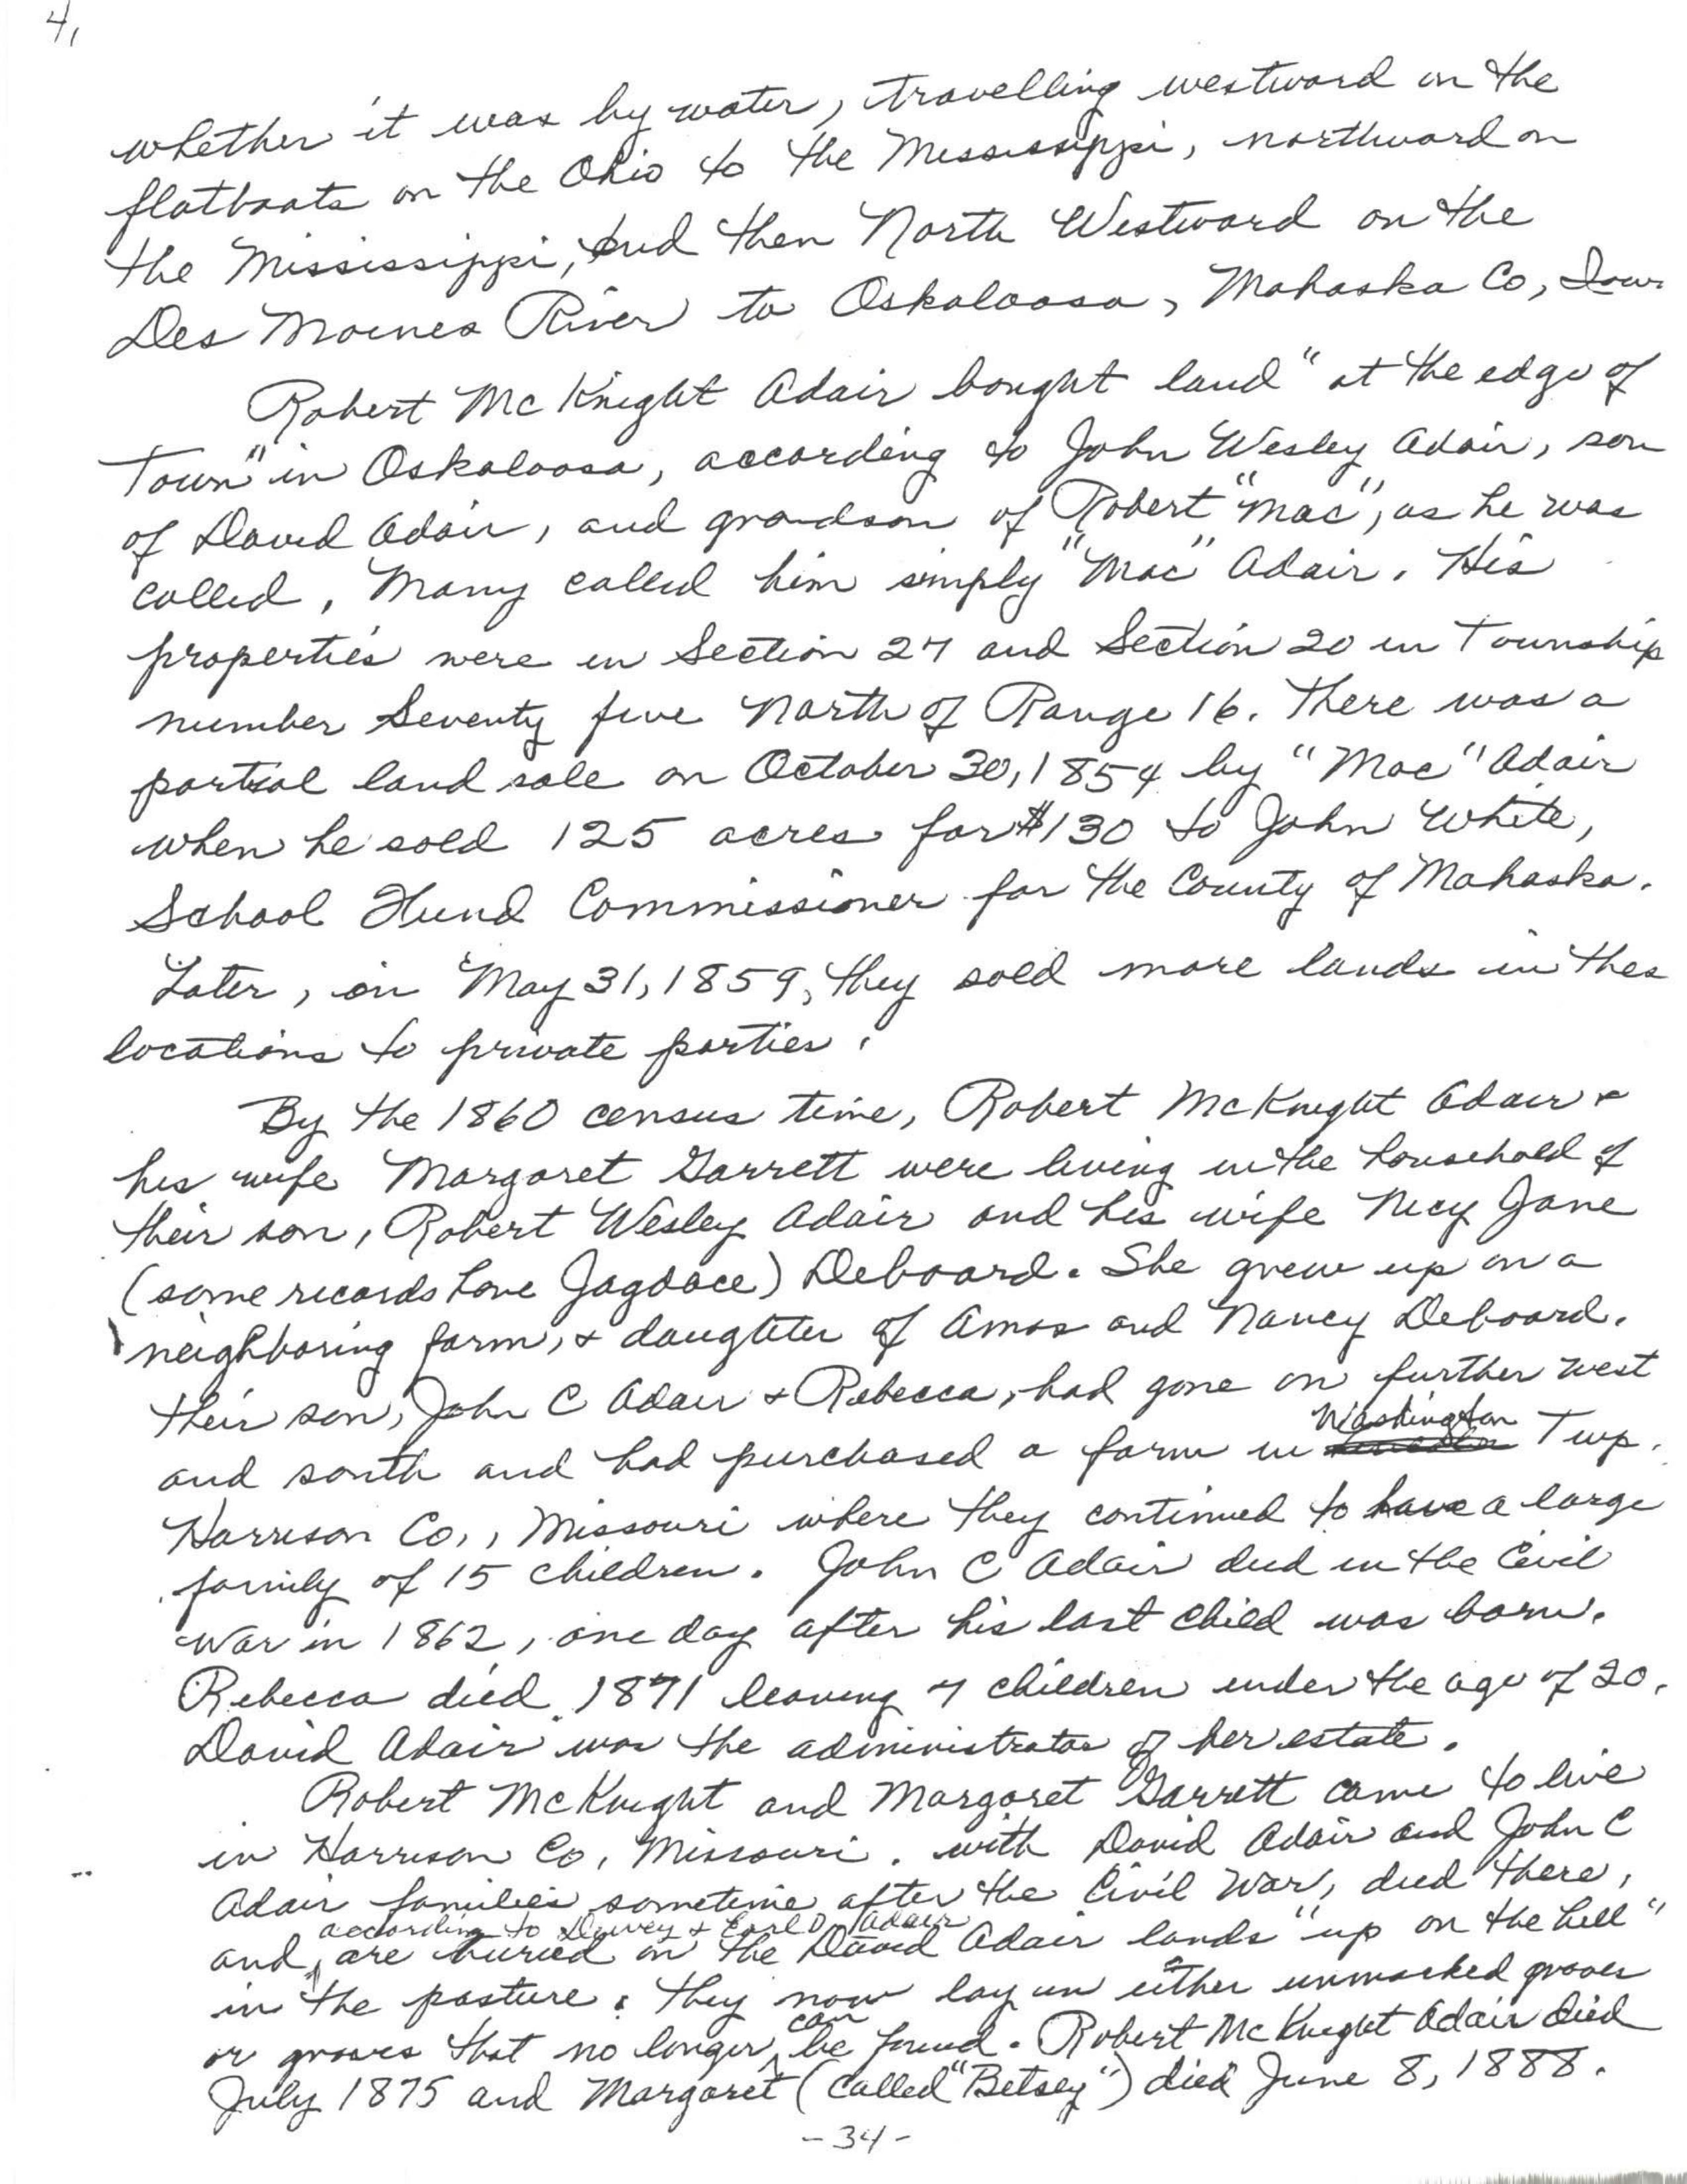 4,
whether it was by water, travelling westward on the
flatboats on the Ohio to the Mississippi, northward on
the Mississippi, and then North Westward on the
Des Moines River to Oskaloosa, Mahaska Co, Iowa
Robert McKnight Adair bought land "at the edge of
Town" in Oskaloosa, according to John Wesley Adair, son
of David Adair, and grandson of Robert "Mac", as he was
called. Many called him simply "Mac" Adair. His
properties were in Section 27 and Section 20 in Township
number Seventy five North of Range 16. There was a
partial land sale on October 30, 1854 by "Mac" Adair
when he sold 125 acres for $130 to John White,
School Fund Commissioner for the County of Mahaska.
Later, on May 31, 1859, they sold more lands in thes
locations to private parties.
By the 1860 census time, Robert McKnight Adair &
his wife Margaret Garrett were living in the household of
their son, Robert Wesley Adair and his wife Necy Jane
(some records have Jagdace) Deboard. She grew up on a
neighboring farm, & daughter of Amos and Nancy Deboard.
Their son, John C Adair & Rebecca, had gone on further west
and south and had purchased a farm in Washington Twp.
Harrison Co., Missouri where they continued to have a large
family of 15 children. John C Adair died in the Civil
War in 1862, one day after his last child was born.
Rebecca died 1871 leaving 7 children under the age of 20.
David Adair was the administrator of her estate.
Robert McKnight and Margaret Garrett came to live
in Harrison Co, Missouri. with David Adair and John C
Adair families sometime after the Civil War, died there,
according to Dewey & Earl D. Adair
and are buried on the David Adair lands "up on the hill"
in the pasture. They now lay in either unmarked graves
or graves that no longer can be found. Robert McKnight Adair died
July 1875 and Margaret (called "Betsey") died June 8, 1888.
-34-